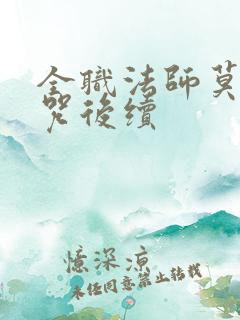 全職法師莫
咒後續
憶深涼
未经同意禁止转载